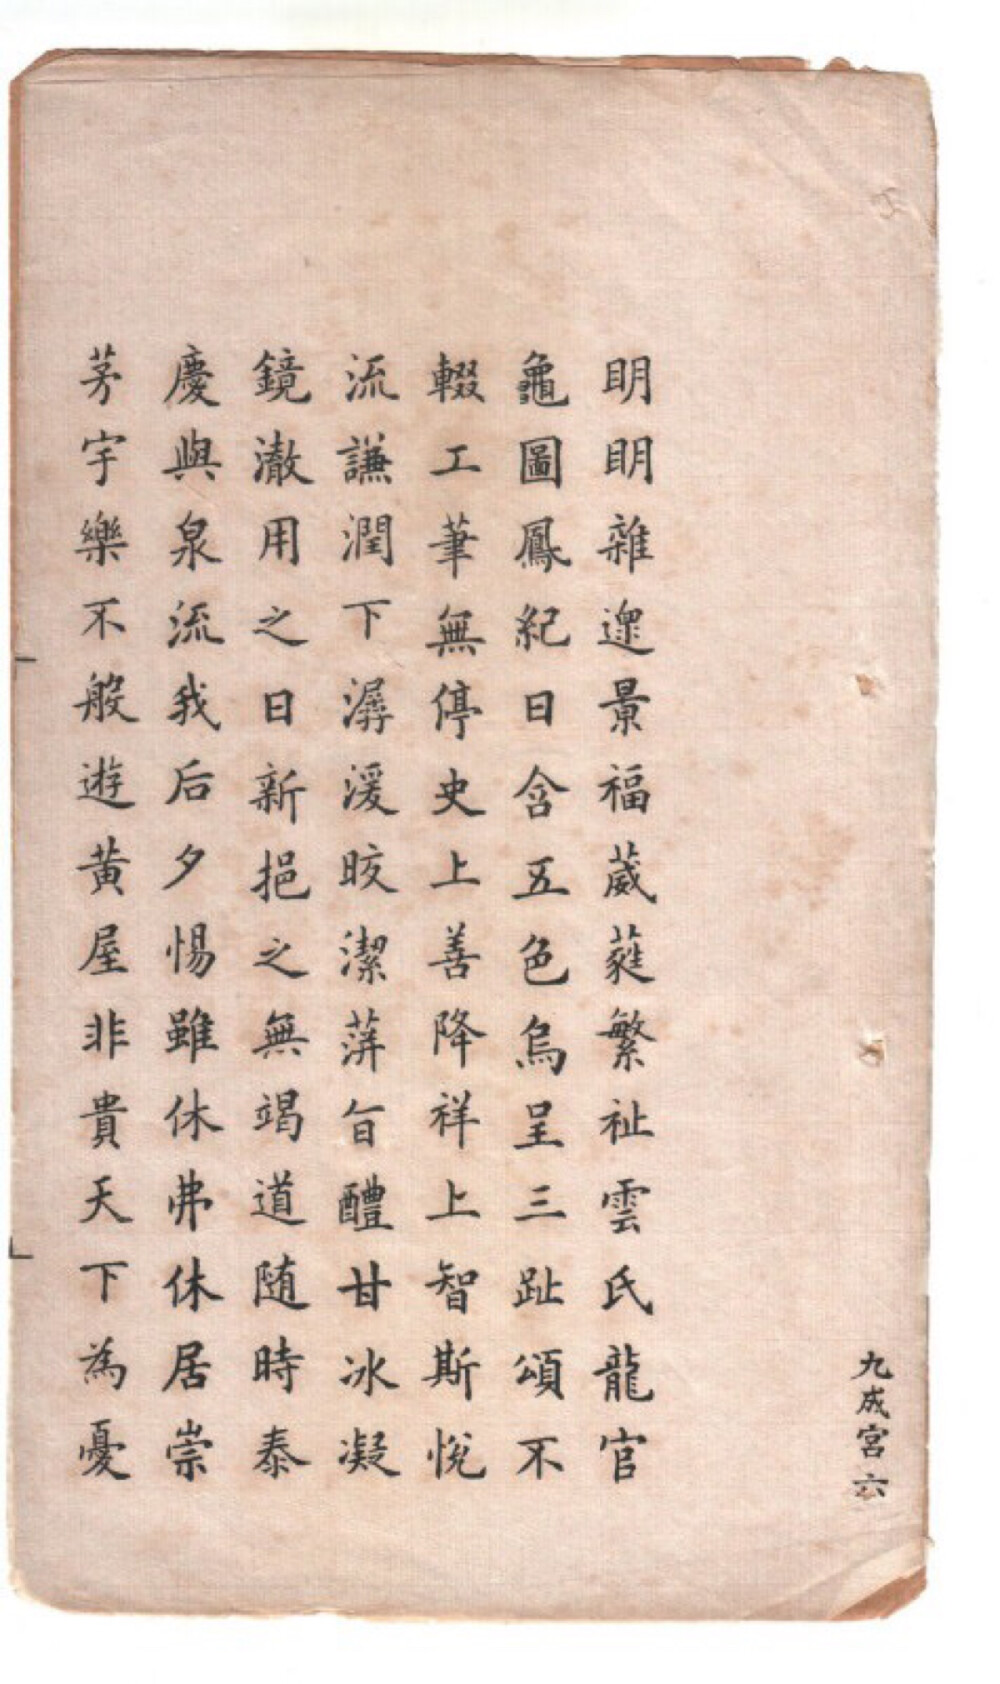 九成宮六
明明雜遝景福葳蕤繁祉雲氏龍官
龜圖鳳紀日含五色烏呈三趾頌不
輟工筆無停史上善降祥上智斯悅
流謙潤下潺湲皎潔蓱旨醴甘冰凝
鏡澈用之日新挹之無竭道随時泰
慶與泉流我后夕惕雖休弗休居崇
茅宇樂不般遊黃屋非貴天下為憂